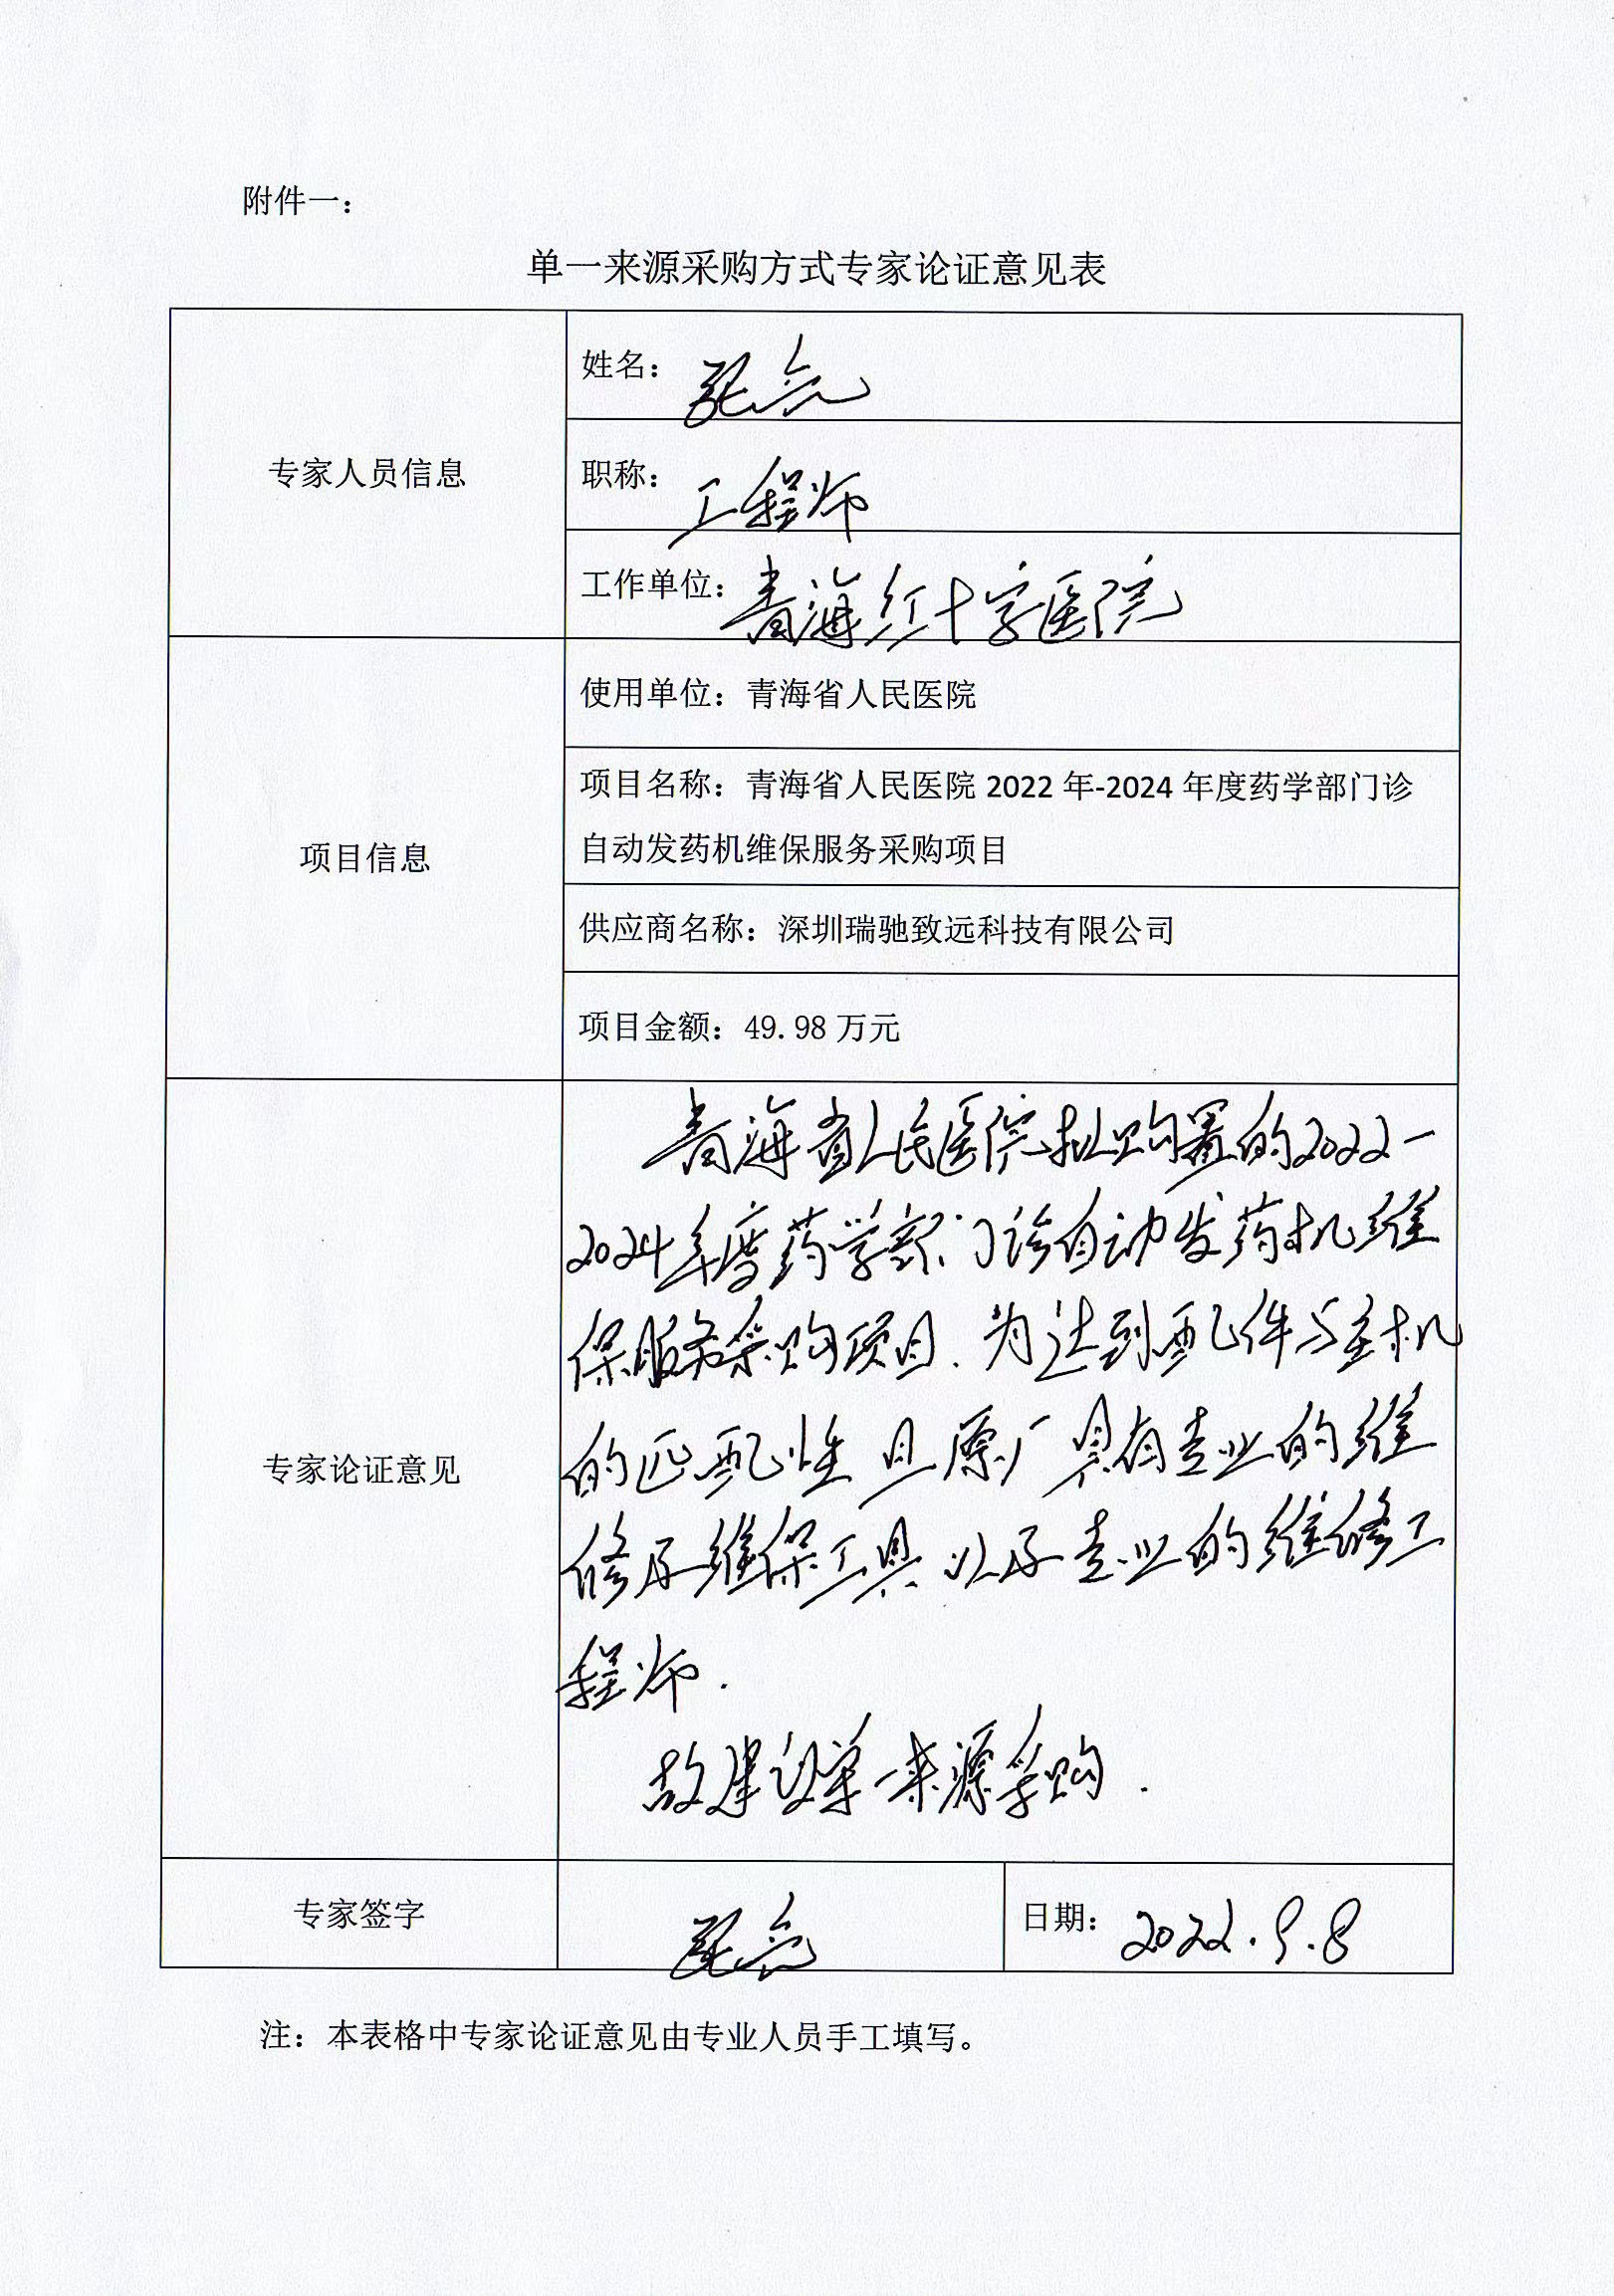 附件一：
单一来源采购方式专家论证意见表
专家人员信息
姓名：张亮
职称：工程师
工作单位：青海红十字医院
项目信息
使用单位：青海省人民医院
项目名称：青海省人民医院 2022 年-2024 年度药学部门诊
自动发药机维保服务采购项目
供应商名称：深圳瑞驰致远科技有限公司
项目金额：49.98 万元
专家论证意见
青海省人民医院拟购置的2022-
2024年度药学部门诊自动发药机维
保服务采购项目.为达到配件与主机
的匹配性且原厂具有专业的维
修及维保工具以及专业的维修工
程师.
故建议单一来源采购.
专家签字
张亮
日期：2022.9.8
注：本表格中专家论证意见由专业人员手工填写。